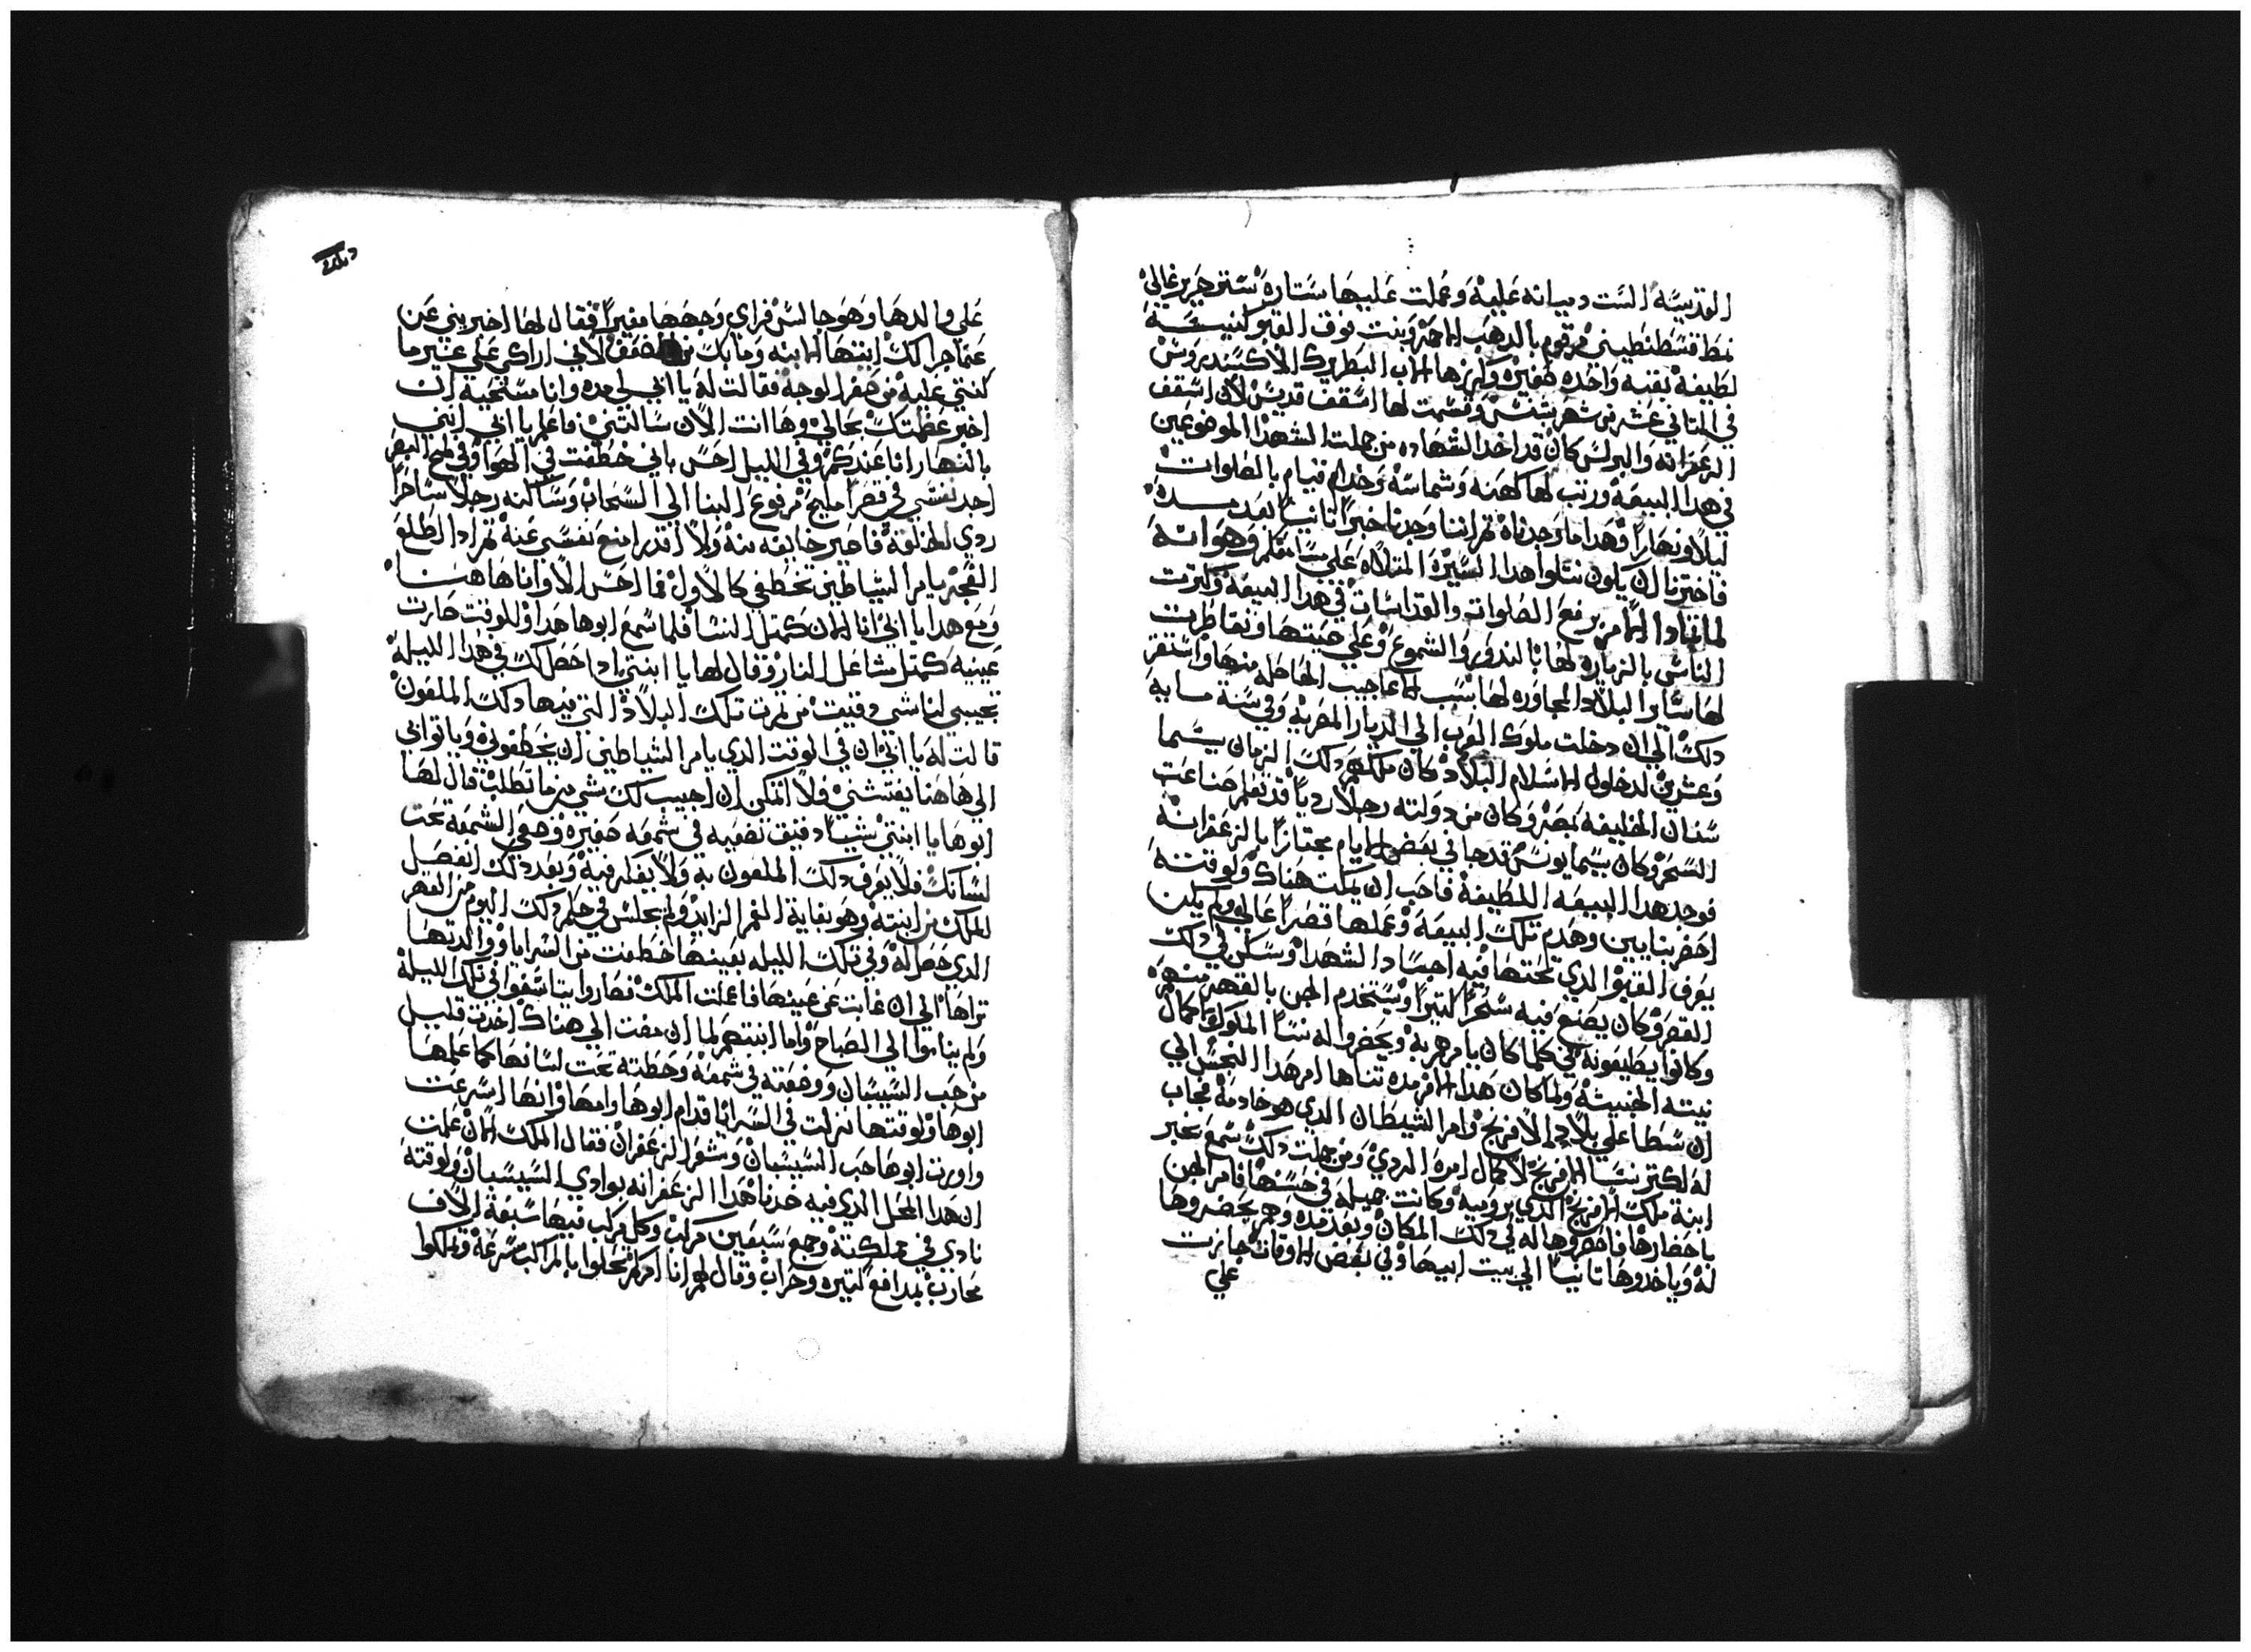 القديسه الست دميانه عليه وعملت عليها ستارة ستر حرير غالي
نمط قسطنطيني مرقوم بالدهب الاحمر وبنت فوق القبو كنيسة
لطيفة بقبه واحده صغيره وكرزها الاب البطريرك الاكسندروس
في التاني عشر من شهر بشنس وقسمت لها اسقف قديس لان اسقف
الزعفرانه والبرلس كان قد اخد الشهاده من جملت الشهدا الموضوعين
في هدا البيعة ورتب لها كهنه وشماسة وخدام قيام بالصلوات
ليلا ونهارا وهدا ما وجدناه تم اننا وجدنا خبرا تانيا بعد مده
فاخترنا ان يكون نتلوا هدا السيرة المتلاه على وهو انه
لما تمادا الامر برفع الصلوات والقداسات في هدا البيعة وكترت
الناس بالزياره لها بالندور والشموع وعلى صيتها وتقاطرت
لها ساير البلاد المجاوره لها بسبب العجايب الحاصله منها واستقر
دلك الي ان دخلت ملوك العرب الي الديار المصرية وفي سنة مايه
وعشرين لدخول الاسلام البلاد كان ملكهم دلك الزمان يسما
سفان الخليفه بمصر وكان من دولته رجلا رديا قد تعلم صناعت
السحر وكان يسما يونس قد جا في بعض الايام مجتازا بالزعفرانة
فوجد هدا البيعه اللطيفة فاحب ان يمكت هناك ولوقتة
احضر بنايين وهدم تلك البيعة وعملها قصرا عالي ولم يكن
يعرف القبو الدي تحتها فيه اجساد الشهدا وسكن في دلك
القصر وكان يصنع فيه سحرا كتيرا ويستخدم الجن بالقهر منهم
وكانوا يطيعونه في كلما كان يامرهم به ويحضروا له نسا الملوك لاكمال
نيته الخبيثة ولما كان هدا الامر مده تناها امر هدا النجس الي
ان سطا علي بلاد الافرنج وامر الشيطان الدي هو خادمه فجاب
له لكتر نسا الافرنج لاكمال امره الردي ومن جملت دلك سمع بخبر
ابنة ملك الافرنج الدي بروميه وكانت جميله في حسنها فامر الجن
باحضارها فاحضروها له في دلك المكان وبعد مده وهم يحضروها
له وياخدوها تانيا الي بيت ابيها وفي بعض الاوقات جازت
علي
علي والدها وهو جالس فراي وجهها مغيرا فقال لها اخبريني عن
عما جرا لك ايتها الابنه وما بك من الضعف لاني اراكي علي غير ما
كنتي عليه من صفر الوجه فقالت له يا ابي لي مده وانا مستحية ان
اخبر عظمتك بحالي وها انت الان سالتني فاعلم يا ابي انني
بالنهار انا عندكم وفي الليل احس باني خطفت في الهوا وفي لمح البصر
اجد نفسي في قصرا مليح مرفوع البنا الي السحاب وساكنه رجلا ساحرا
ردي الخلقة فاصير خايفه منه ولا اقدر امنع نفسي عنه تم ادا طلع
الفجر يامر الشياطين تخطفي كالاول فما احس الا وانا هاهنا
ومع هدا يا ابي انا الان كمتل النسا فلما سمع ابوها هدا وللوقت صارت
عينيه كمتل مشاعل النار وقال لها يا ابنتي ادا حصل لك في هدا الليلة
تجيبي لنا شي دقيق من تمرت تلك البلاد التي فيها دلك الملعون
قالت له يا ابي ان في الوقت الدي يامر الشياطين ان يخطفوني وياتوا بي
الي هاهنا يفتشني ولا اتمكن ان اجيب لك شي من ما تطلب قال لها
ابوها يا ابنتي شيا دقيق تضعيه في شمعه صغيره وضعي الشمعة تحت
لسانك فلا يعرف دلك الملعون به ولا يفكر فيه وبعد دلك انفصل
الملك من ابنته وهو بغاية الغم الزايد ولم يجلس في حكم دلك اليوم من القهر
الدي حصل له وفي تلك الليله بعينها خطفت من السرايا ووالدتها
تراها الي ان غابت عن عينها فاعلمت الملك فصاروا يتاسفوا في تلك الليلة
ولم يناموا الي الصباح واما ابنتهم لما ان مضت الي هناك اخدت قليل
من حب السيسبان ووضعته في شمعة وحطته تحت لسانها كما علمها
ابوها ولوقتها نزلت في السرايا قدام ابوها وامها وانها اسرعت
واورت ابوها حب السيسبان وشعر الزعفران فقال الملك الان علمت
ان هدا المحل الدي فيه خدنا هدا الزعفرانه بوادي السيسبان ولوقته
نادي في مملكته وجمع سبعين مركب وكل مركب فيها سبعة الاف
محارب بمدافع كتيره وحراب وقال لهم انا امركم تحلوا بالمراكب بسرعة وتملكوا